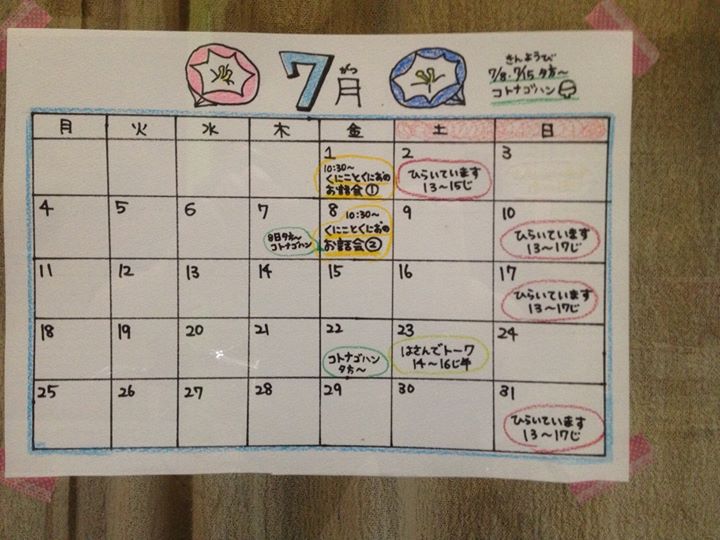 7月
がつ
きんようび
7/8・7/15 夕方～
コトナゴハン
月 火 水 木 金 土 日
1 2 3
10:30～
くにことくにおの
お話会①
ひらいています
13～15じ
4 5 6 7 8 9 10
8日夕方～
コトナゴハン
10:30～
くにことくにおの
お話会②
ひらいています
13～17じ
11 12 13 14 15 16 17
ひらいています
13～17じ
18 19 20 21 22 23 24
コトナゴハン
夕方～
はさんでトーク
14～16じ半
25 26 27 28 29 30 31
ひらいています
13～17じ